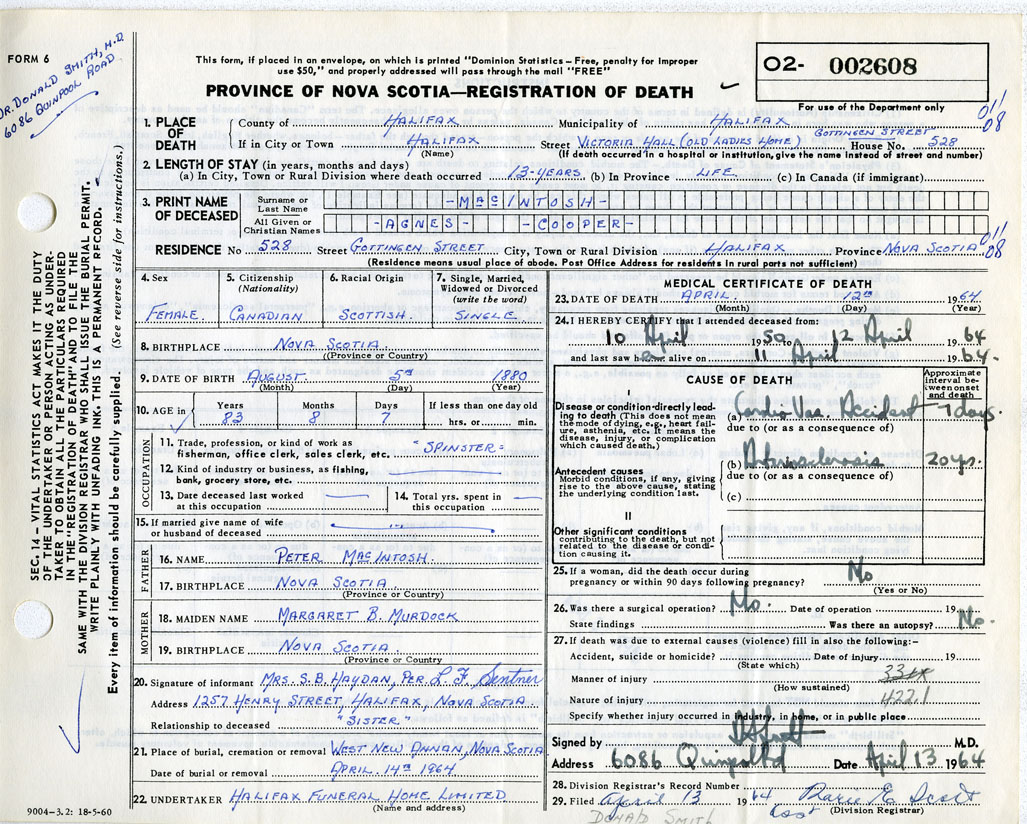 FORM 6
DR. DONALD SMITH, M.D.
6086 QUINPOOL ROAD
This form, if placed in an envelope, on which is printed "Dominion Statistics – Free, penalty for improper
use $50," and properly addressed will pass through the mail "FREE"
PROVINCE OF NOVA SCOTIA—REGISTRATION OF DEATH
02- 002608
For use of the Department only
SEC. 14 – VITAL STATISTICS ACT MAKES IT THE DUTY
OF THE UNDERTAKER OR PERSON ACTING AS UNDER-
TAKER TO OBTAIN ALL THE PARTICULARS REQUIRED
IN THE "REGISTRATION OF DEATH" AND TO FILE THE
SAME WITH THE DIVISION REGISTRAR WHO SHALL ISSUE THE BURIAL PERMIT.
WRITE PLAINLY WITH UNFADING INK. THIS IS A PERMANENT RECORD.
Every item of information should be carefully supplied. (See reverse side for instructions.)
1. PLACE OF DEATH
County of HALIFAX Municipality of HALIFAX 01/08
If in City or Town HALIFAX (Name) Street VICTORIA HALL (OLD LADIES HOME) GOTTINGEN STREET House No. 528
(If death occurred in a hospital or institution, give the name instead of street and number)
2. LENGTH OF STAY (in years, months and days)
(a) In City, Town or Rural Division where death occurred 13-YEARS (b) In Province LIFE (c) In Canada (if immigrant)
3. PRINT NAME OF DECEASED
Surname or Last Name -MACINTOSH-
All Given or Christian Names -AGNES- -COOPER-
RESIDENCE No. 528 Street GOTTINGEN STREET City, Town or Rural Division HALIFAX Province NOVA SCOTIA 01/08
(Residence means usual place of abode. Post Office Address for residents in rural parts not sufficient)
4. Sex FEMALE.
5. Citizenship (Nationality) CANADIAN
6. Racial Origin SCOTTISH
7. Single, Married, Widowed or Divorced (write the word) SINGLE
8. BIRTHPLACE NOVA SCOTIA
(Province or Country)
9. DATE OF BIRTH AUGUST 5TH 1880
(Month) (Day) (Year)
10. AGE in Years 83 Months 8 Days 7 If less than one day old hrs. or min.
OCCUPATION
11. Trade, profession, or kind of work as
fisherman, office clerk, sales clerk, etc. "SPINSTER"
12. Kind of industry or business, as fishing,
bank, grocery store, etc.
13. Date deceased last worked
at this occupation
14. Total yrs. spent in
this occupation
15. If married give name of wife
or husband of deceased
FATHER
16. NAME PETER MACINTOSH
17. BIRTHPLACE NOVA SCOTIA
(Province or Country)
MOTHER
18. MAIDEN NAME MARGARET B. MURDOCK
19. BIRTHPLACE NOVA SCOTIA
(Province or Country
20. Signature of informant MRS. S.B. HAYDAN, PER. L F Sentner
Address 1257 HENRY STREET, HALIFAX, NOVA SCOTIA
Relationship to deceased "SISTER"
21. Place of burial, cremation or removal WEST NEW ANNAN, NOVA SCOTIA
Date of burial or removal APRIL 14TH 1964
22. UNDERTAKER HALIFAX FUNERAL HOME LIMITED
(Name and address)
9004-3.2: 18-5-60
MEDICAL CERTIFICATE OF DEATH
23. DATE OF DEATH APRIL 12TH 1964
(Month) (Day) (Year)
24. I HEREBY CERTIFY that I attended deceased from:
10 April 1950 to 12 April 1964
and last saw her alive on 11 April 1964
CAUSE OF DEATH
Approximate interval between onset and death
Disease or condition directly lead-
ing to death (This does not mean
the mode of dying, e.g., heart fail-
ure, asthenia, etc. It means the
disease, injury, or complication
which caused death.)
(a) Cardio Vas. Accident 7 days.
due to (or as a consequence of)
Antecedent causes
Morbid conditions, if any, giving
rise to the above cause, stating
the underlying condition last.
(b) Arteriosclerosis 20 yrs.
due to (or as a consequence of)
(c)
II
Other significant conditions
contributing to the death, but not
related to the disease or condi-
tion causing it.
25. If a woman, did the death occur during
pregnancy or within 90 days following pregnancy? No
(Yes or No)
26. Was there a surgical operation? No. Date of operation 19
State findings Was there an autopsy? No.
27. If death was due to external causes (violence) fill in also the following:–
Accident, suicide or homicide? Date of injury 19
(State which)
Manner of injury
(How sustained)
Nature of injury 422.1
Specify whether injury occurred in industry, in home, or in public place
Signed by M.D.
Address 6086 Quinpool Rd Date April 13 1964
28. Division Registrar's Record Number
29. Filed April 13 1964 Scott
(Division Registrar)
DONALD SMITH